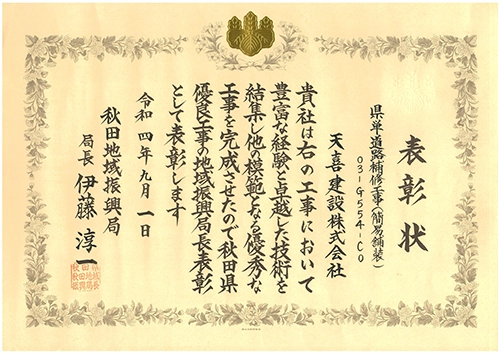 表彰状
県単道路補修工事(簡易舗装)
031-G554-C0
天喜建設株式会社
貴社は右の工事において
豊富な経験と卓越した技術を
結集し他の模範となる優秀な
工事を完成させたので秋田県
優良工事の地域振興局長表彰
として表彰します
令和四年九月一日
秋田地域振興局
局長 伊藤淳一